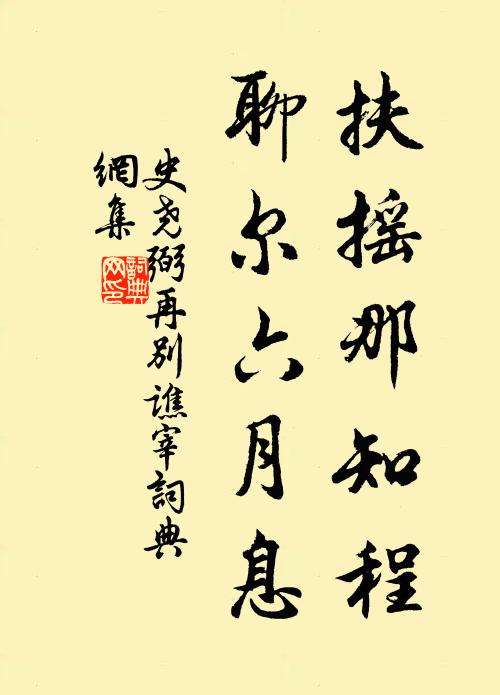 扶摇那知程
聊尔六月息
史尧弼再别谯宰詞典
網集
詞典
网印